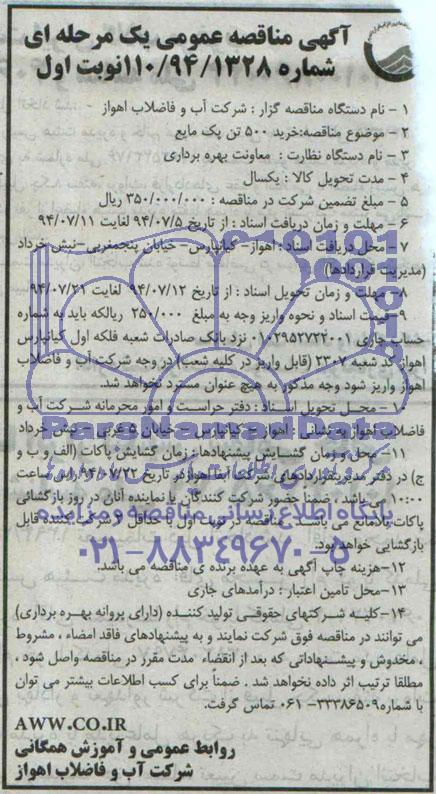 آگهی مناقصه عمومی یک مرحله ای
شماره ۱۱۰/۹۴/۱۳۲۸ نوبت اول
۱ - نام دستگاه مناقصه گزار : شرکت آب و فاضلاب اهواز
۲ - موضوع مناقصه:خرید ۵۰۰ تن پک مایع
۳ - نام دستگاه نظارت : معاونت بهره برداری
۴ - مدت تحویل کالا : یکسال
۵ - مبلغ تضمین شرکت در مناقصه : ۳۵۰/۰۰۰/۰۰۰ ریال
۶ - مهلت و زمان دریافت اسناد : از تاریخ ۹۴/۰۷/۵ لغایت ۹۴/۰۷/۱۱
۷ - محل دریافت اسناد : اهواز- کیانپارس- خیابان پنجم غربی-نبش خرداد
(مدیریت قراردادها)
۸- مهلت و زمان تحویل اسناد : از تاریخ ۹۴/۰۷/۱۲ لغایت ۹۴/۰۷/۲۱
۹-قیمت اسناد و نحوه واریز وجه به مبلغ ۲۵۰/۰۰۰ ریالکه باید به شماره
حساب جاری ۰۱۰۲۹۵۲۷۲۲۰۰۱ نزد بانک صادرات شعبه فلکه اول کیانپارس
اهواز کد شعبه ۲۳۰۷ (قابل واریز در کلیه شعب) در وجه شرکت آب و فاضلاب
اهواز واریز شود وجه مذکور به هیچ عنوان مسترد نخواهد شد.
۱۰- محل تحویل اسناد : دفتر حراست و امور محرمانه شرکت آب و
فاضلاب اهواز به نشانی : اهواز - کیانپارس- خیابان ۵ غربی - نبش خرداد
۱۱- محل و زمان گشایش پیشنهادها : زمان گشایش پاکات (الف و ب و
ج) در دفتر مدیریت قراردادهای شرکت آبفا اهواز در تاریخ ۹۴/۰۷/۲۲ راس ساعت
۱۰:۰۰ می باشد ، ضمنا حضور شرکت کنندگان یا نماینده آنان در روز بازگشائی
پاکات بلامانع می باشد . مناقصه در نوبت اول با حداقل شرکت کننده قابل
بازگشایی خواهد بود.
۱۲-هزینه چاپ آگهی به عهده برنده ی مناقصه می باشد.
۱۳-محل تامین اعتبار : درآمدهای جاری
۱۴-کلیه شرکتهای حقوقی تولید کننده (دارای پروانه بهره برداری)
می توانند در مناقصه فوق شرکت نمایند و به پیشنهادهای فاقد امضاء ، مشروط
، مخدوش و پیشنهاداتی که بعد از انقضاء مدت مقرر در مناقصه واصل شود ،
مطلقا ترتیب اثر داده نخواهد شد . ضمناً برای کسب اطلاعات بیشتر می توان
با شماره ۳۳۳۸۶۵۰۹-۰۶۱ تماس گرفت.
AWW.CO.IR
روابط عمومی و آموزش همگانی
شرکت آب و فاضلاب اهواز
ParsNamadData
پایگاه اطلاع رسانی مناقصه و مزایده
۰۲۱-۸۸۳۴۹۶۷۰-۵